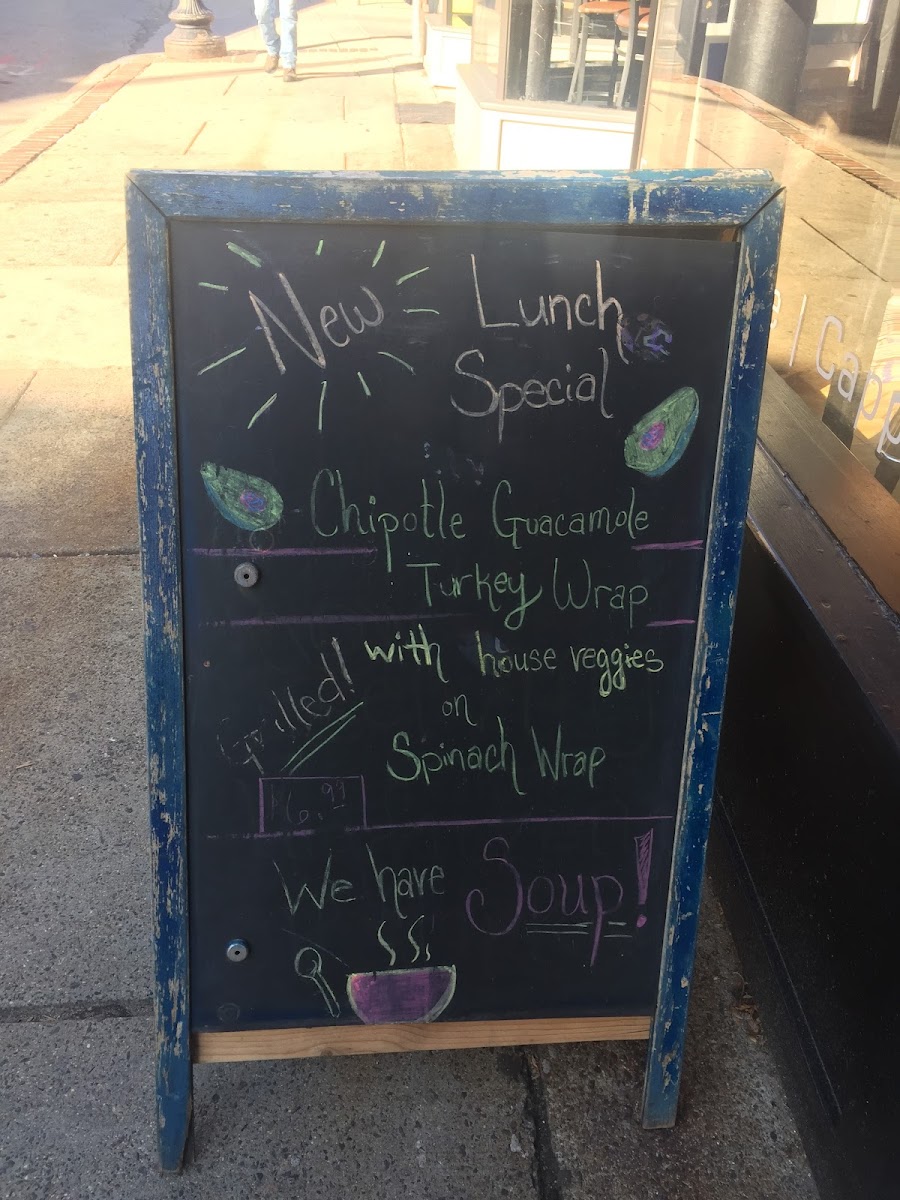 New Lunch
Special
Chipotle Guacamole
Turkey Wrap
with house veggies
on
Grilled!
Spinach Wrap
$6.99
We have Soup!
| Capp